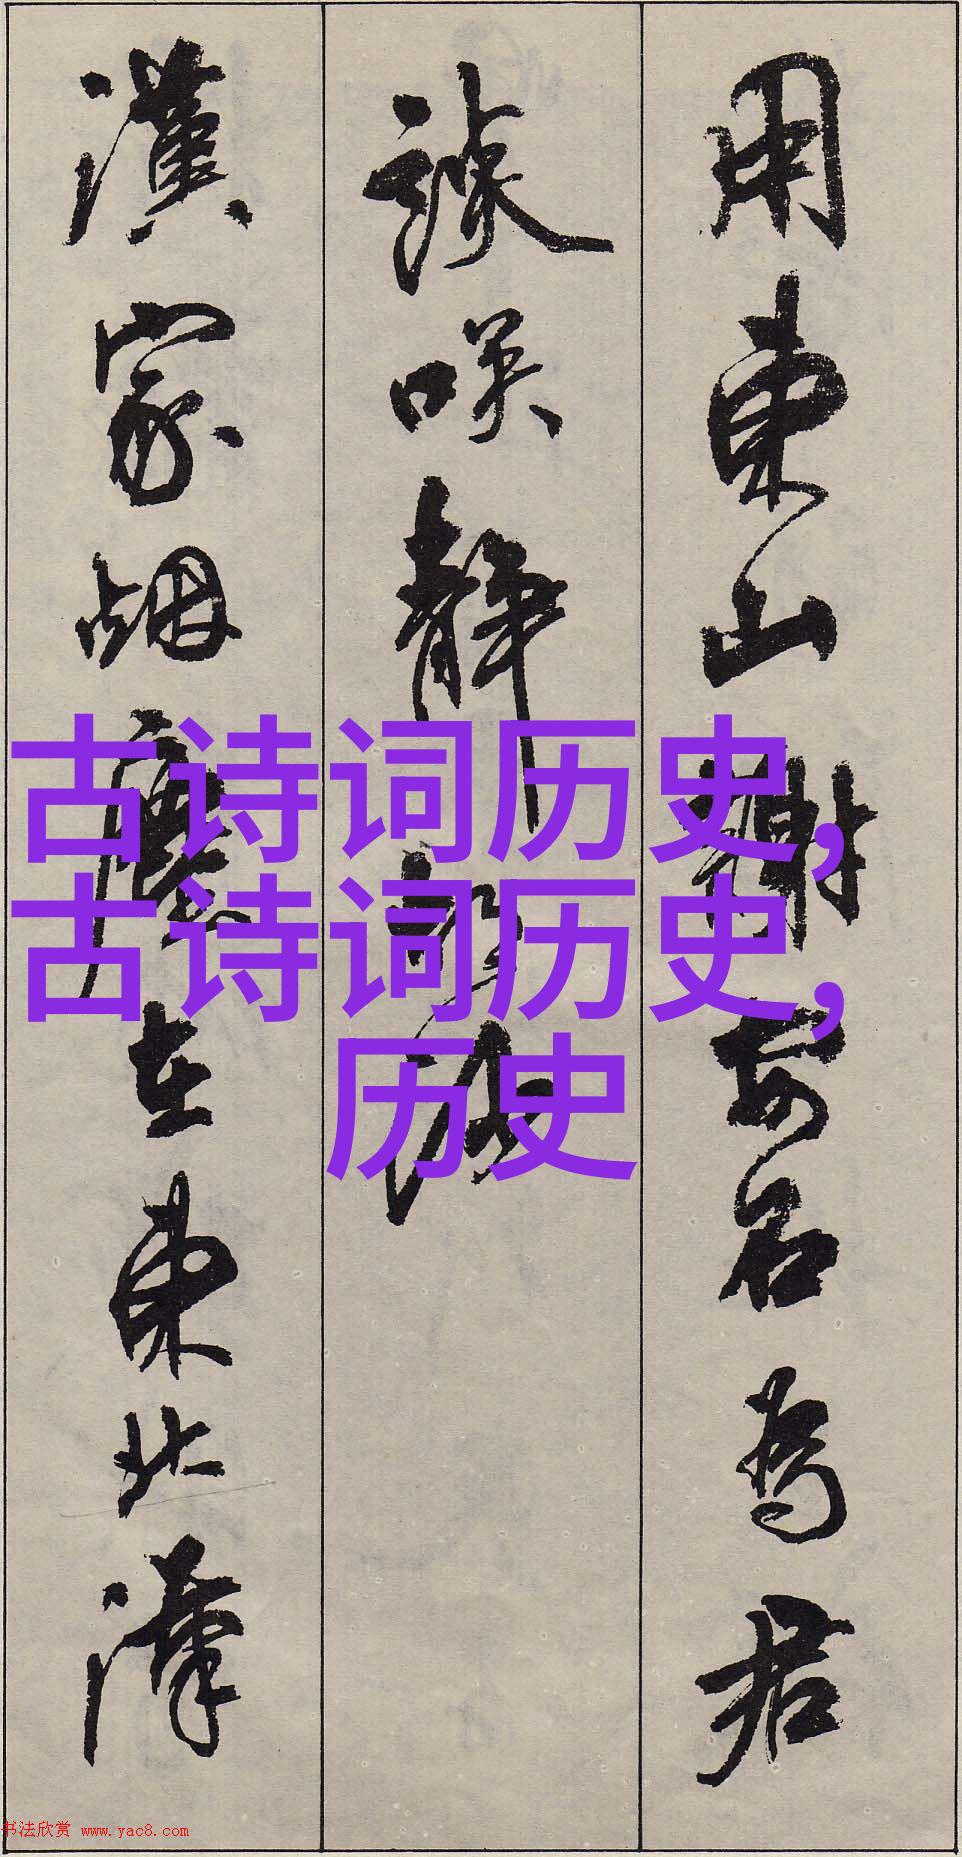 用東山謝安石為君
談咲靜胡沙
漢家烟塵在東北漢
古诗词历史,
古诗词历史,
历史
书法欣赏 www.yac8.com